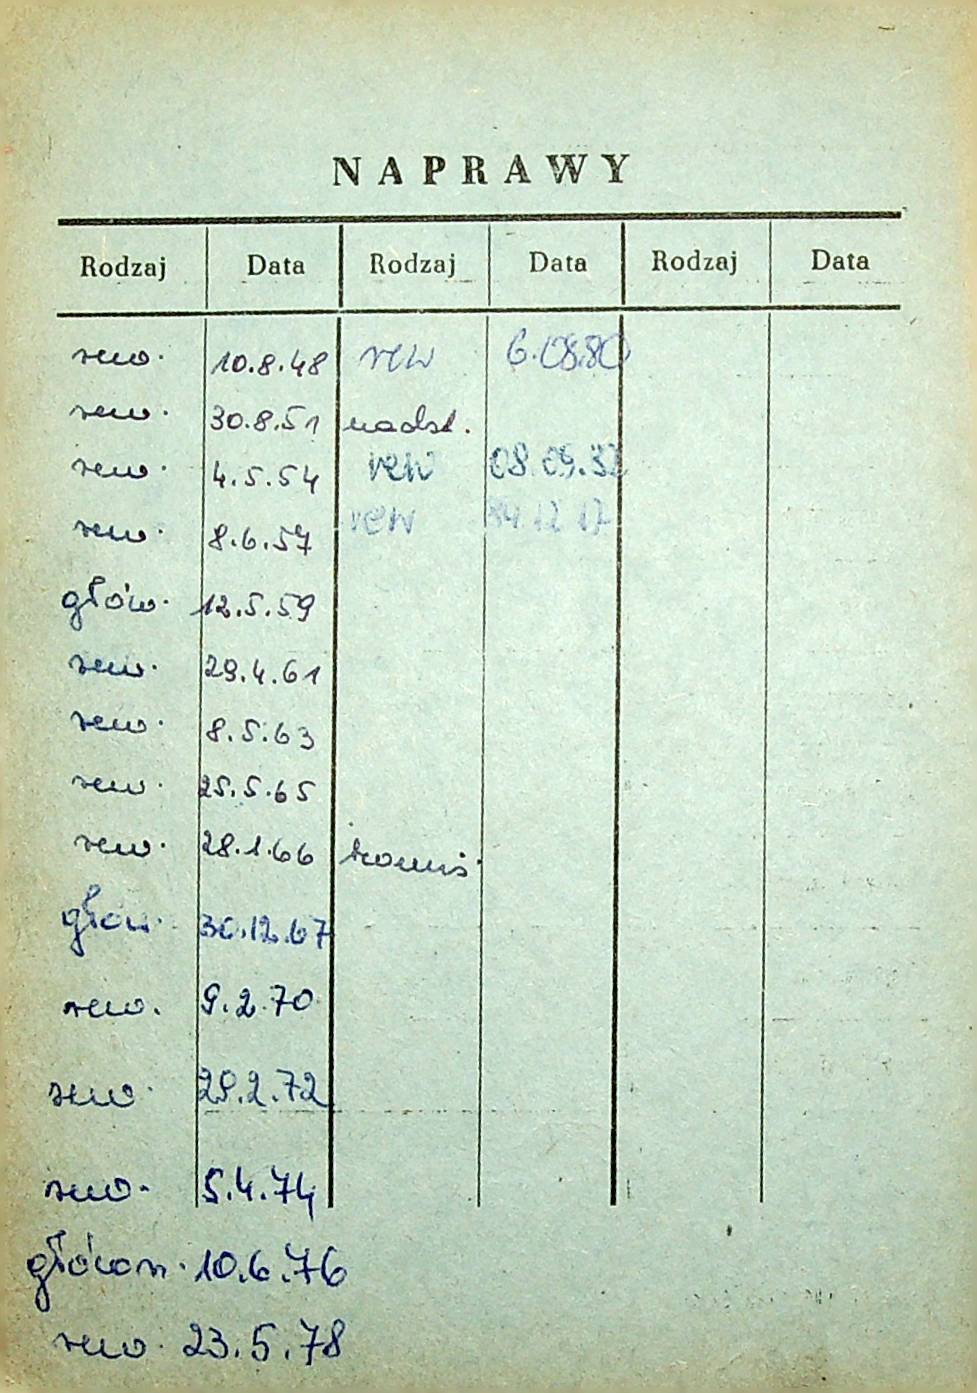 NAPRAWY
Rodzaj Data Rodzaj Data Rodzaj Data
rew. 10.8.48 rew 6.08.80
rew. 30.8.51 nadst.
rew. 4.5.54 rew 08.09.82
rew. 8.6.57 rew 84.12.17
głów. 12.5.59
rew. 29.4.61
rew. 8.5.63
rew. 25.5.65
rew. 28.1.66
głów. 30.12.67
rew. 9.2.70
rew. 29.2.72
rew. 5.4.74
główn. 10.6.76
rew. 23.5.78